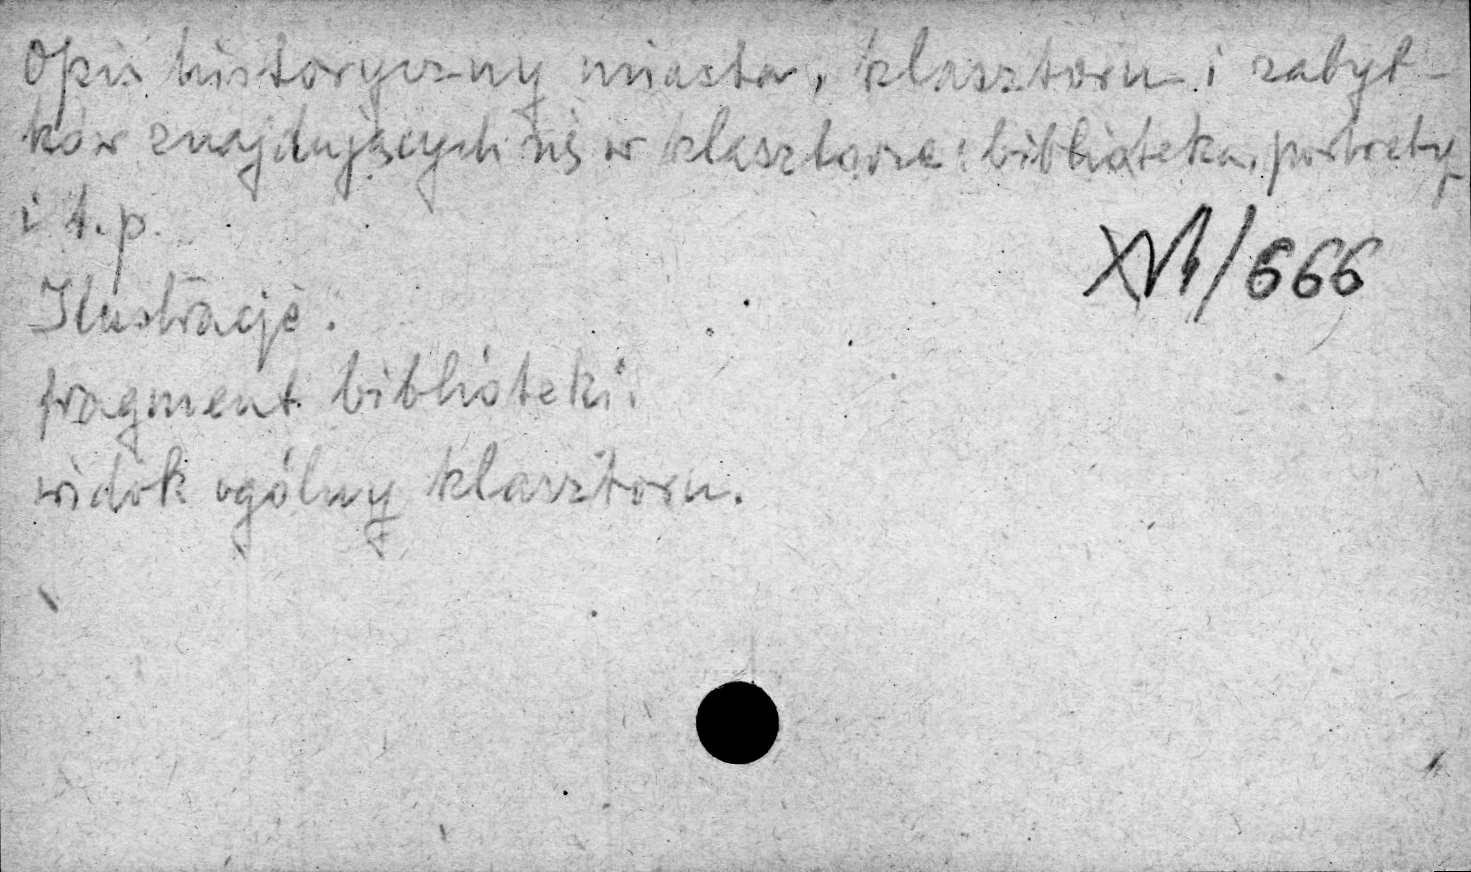 Opis historyczny miasta, klasztoru i zabyt-
ków znajdujących się w klasztorze: biblioteka, portrety
i t.p.
/666
Ilustracje.
fragment biblioteki.
widok ogólny klasztoru.